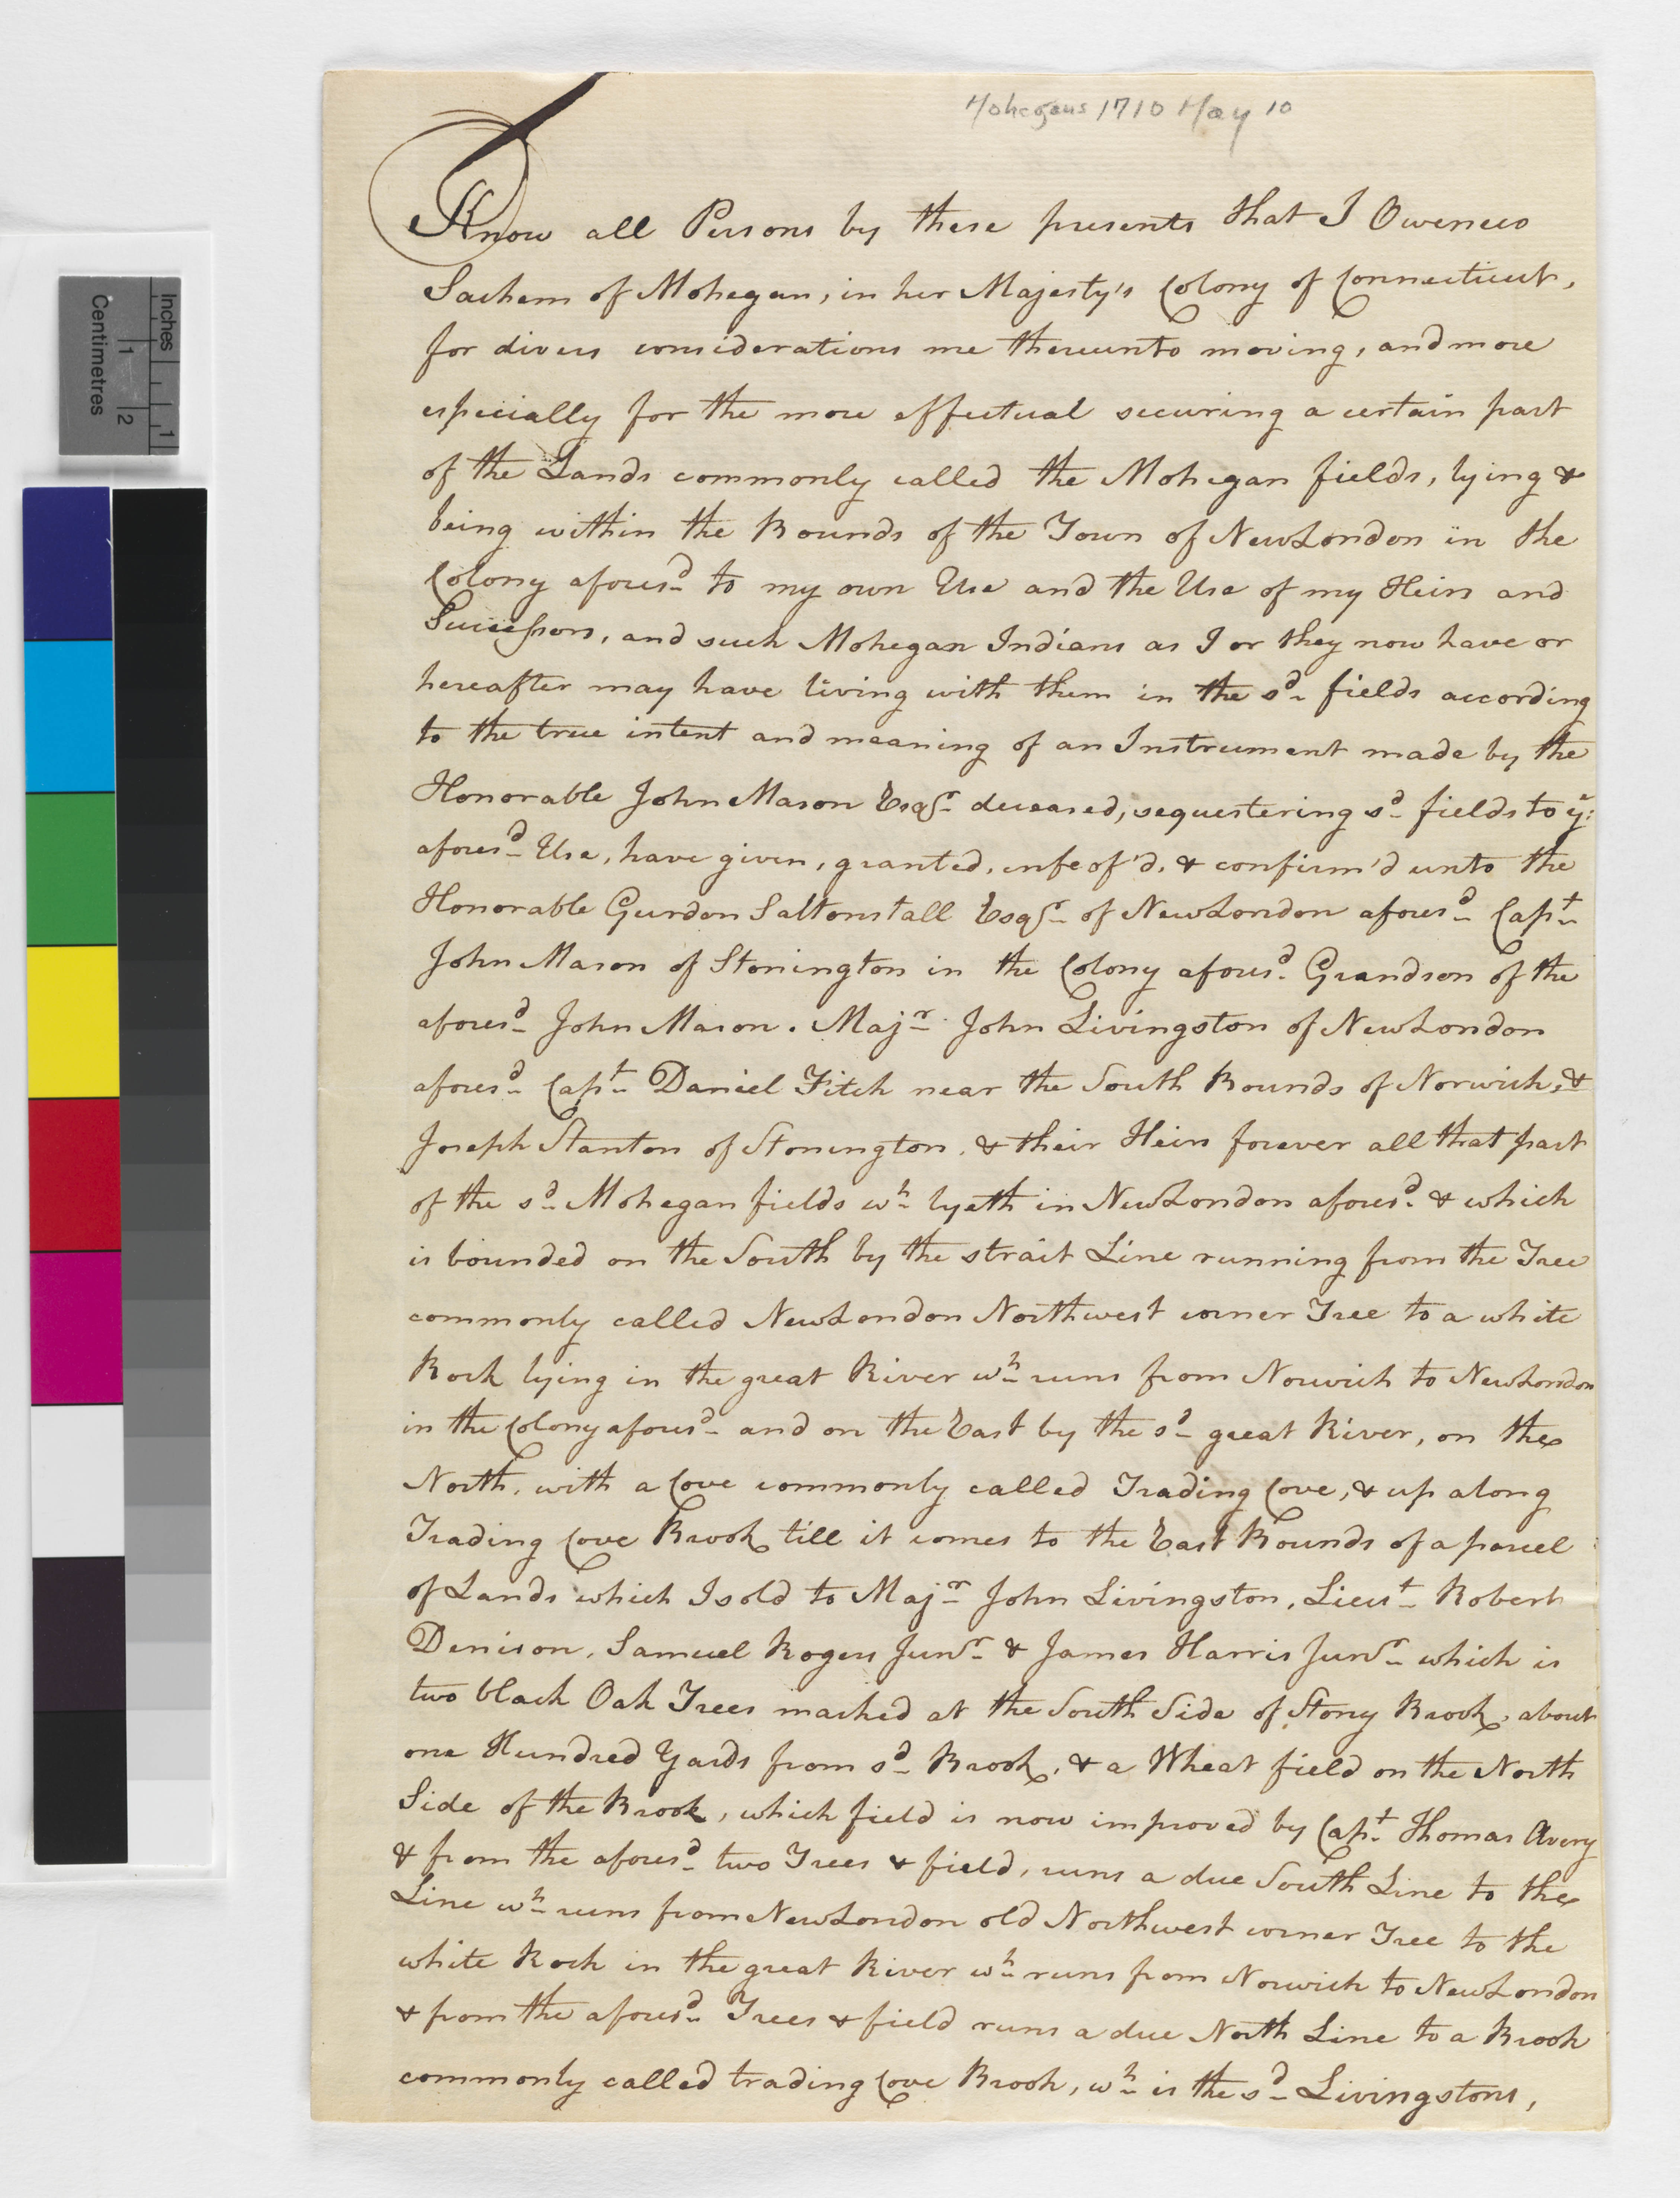 Mohegans 1710 May 10
Know all Persons by these presents that I Oweneco
Sachem of Mohegan, in her Majesty's Colony of Connecticut,
for divers considerations me thereunto moving, and more
especially for the more effectual securing a certain part
of the Lands commonly called the Mohegan fields, lying &
being within the Bounds of the Town of New London in the
Colony afores.d to my own Use and the Use of my Heirs and
Successors, and such Mohegan Indians as I or they now have or
hereafter may have living with them in the s.d fields according
to the true intent and meaning of an Instrument made by the
Honorable John Mason Esq.r deceased, sequestering s.d fields to y.e
afores.d Use, have given, granted, enfeof'd, & confirm'd unto the
Honorable Gurdon Saltonstall Esq.r of New London afores.d Cap.t
John Mason of Stonington in the Colony afores.d Grandson of the
afores.d John Mason. Maj.r John Livingston of New London
afores.d Cap.t Daniel Fitch near the South Bounds of Norwich, &
Joseph Stanton of Stonington, & their Heirs forever all that part
of the s.d Mohegan fields w.h lyeth in New London afores.d & which
is bounded on the South by the strait Line running from the Tree
commonly called New London Northwest corner Tree to a white
Rock lying in the great River w.h runs from Norwich to New London
in the Colony afores.d and on the East by the s.d great River, on the
North, with a Cove commonly called Trading Cove, & up along
Trading Cove Brook till it comes to the East Bounds of a parcel
of Lands which I sold to Maj.r John Livingston, Lieu.t Robert
Denison, Samuel Rogers Jun.r & James Harris Jun.r which is
two black Oak Trees marked at the South Side of Stony Brook, about
one Hundred Yards from s.d Brook, & a Wheat field on the North
Side of the Brook, which field is now improved by Cap.t Thomas Avery
& from the afores.d two Trees & field, runs a due South Line to the
Line w.h runs from New London old Northwest corner Tree to the
white Rock in the great River w.h runs from Norwich to New London
& from the afores.d Trees & field runs a due North Line to a Brook
commonly called trading Cove Brook, w.h is the s.d Livingstons,
Inches
1
Centimetres
1
2